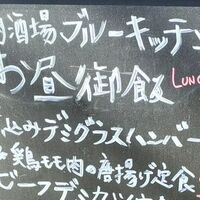 酒場ブルーキッチン
お昼御飯 LUNC
込みデミグラスハンバー
鶏モモ肉の唐揚げ定食
ビーフデミカツ